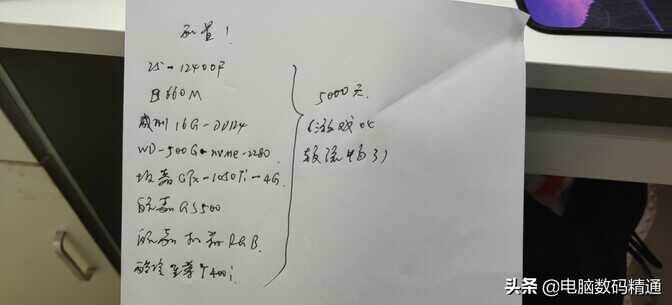 配置！
i5-12400F
B660M
威刚16G-DDR4
WD-500G-nvme-2280
技嘉GTX-1050Ti-4G
航嘉GS500
航嘉 机箱RGB
酷冷至尊T400i
5000元
（游戏OK
较流畅了）
头条 @电脑数码精通